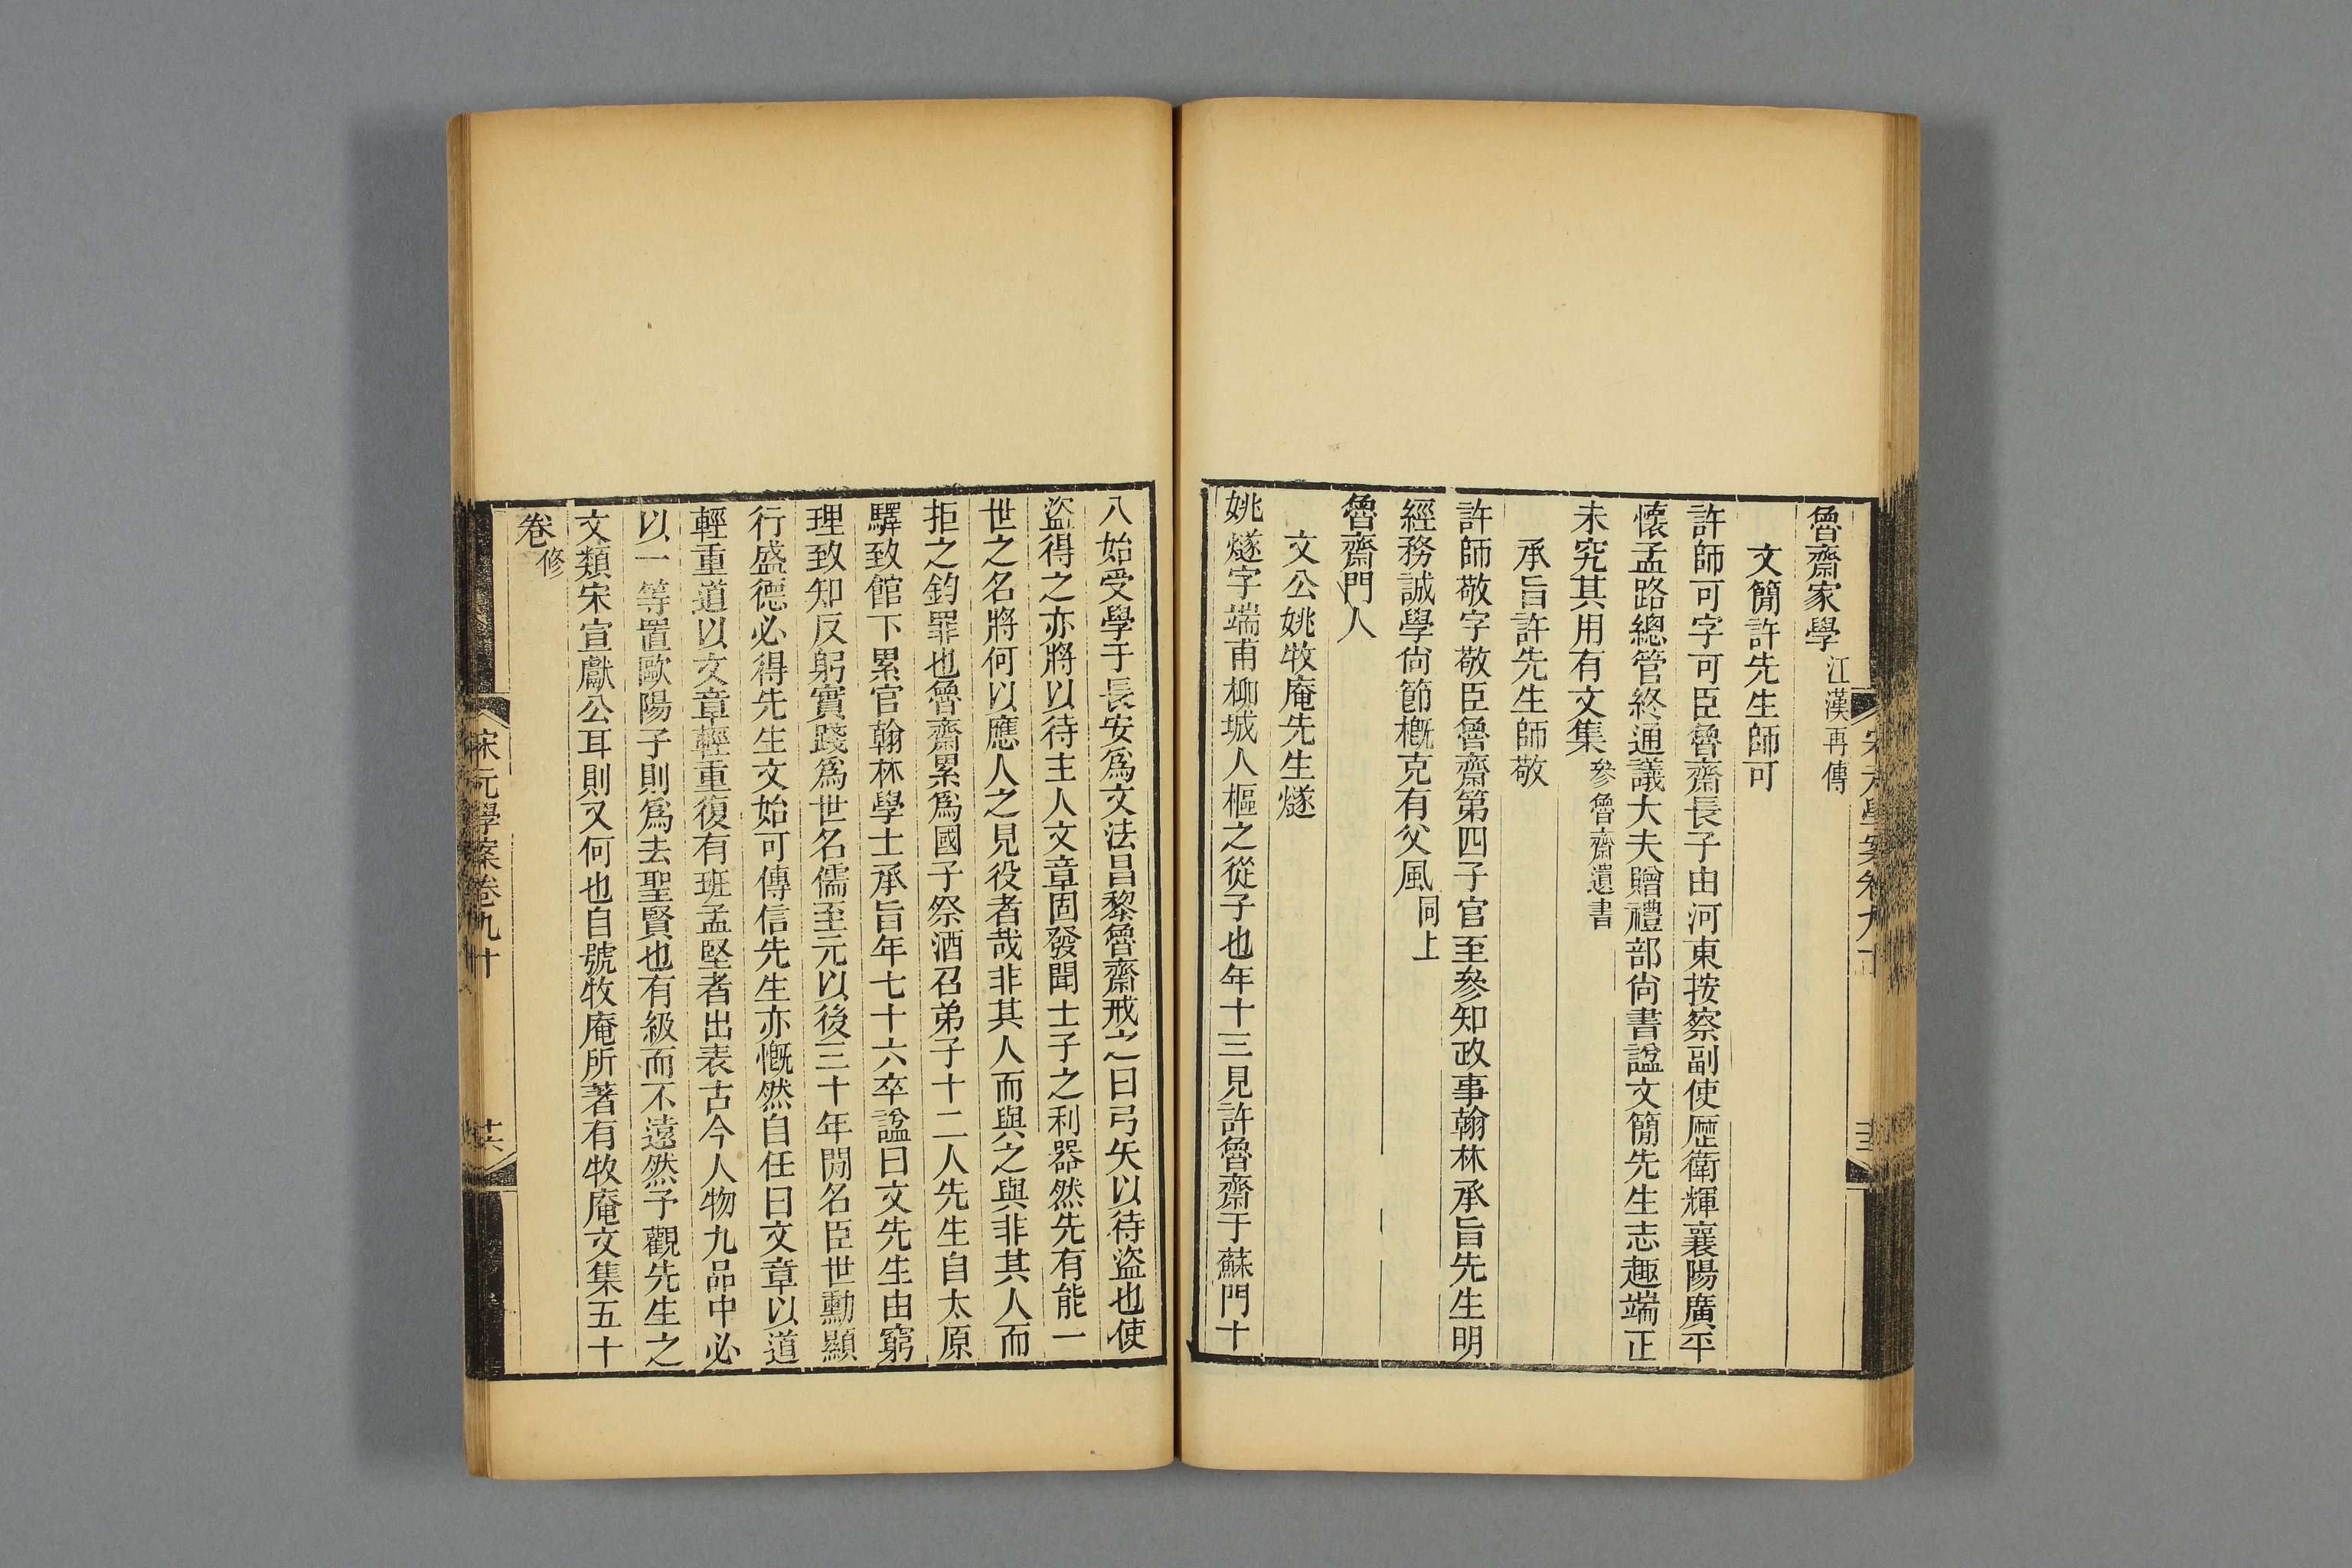 魯齋家學江漢再傳
文簡許先生師可
許師可字可臣魯齋長子由河東按察副使歷衛輝襄陽廣平
懷孟路總管終通議大夫贈禮部尚書諡文簡先生志趣端正
未究其用有文集參魯齋遺書
承旨許先生師敬
許師敬字敬臣魯齋第四子官至參知政事翰林承旨先生明
經務誠學尚節概克有父風同上
魯齋門人
文公姚牧庵先生燧
姚燧字端甫柳城人樞之從子也年十三見許魯齋于蘇門十
八始受學于長安爲文法昌黎魯齋戒之曰弓矢以待盜也使
盜得之亦將以待主人文章固發聞士子之利器然先有能一
世之名將何以應人之見役者哉非其人而與之與非其人而
拒之鈞罪也魯齋累爲國子祭酒召弟子十二人先生自太原
驛致館下累官翰林學士承旨年七十六卒諡曰文先生由窮
理致知反躬實踐爲世名儒至元以後三十年閒名臣世勳顯
行盛德必得先生文始可傳信先生亦慨然自任曰文章以道
輕重道以文章輕重復有班孟堅者出表古今人物九品中必
以一等置歐陽子則爲去聖賢也有級而不遠然予觀先生之
文類宋宣獻公耳則又何也自號牧庵所著有牧庵文集五十
卷修
宋元學案卷九十